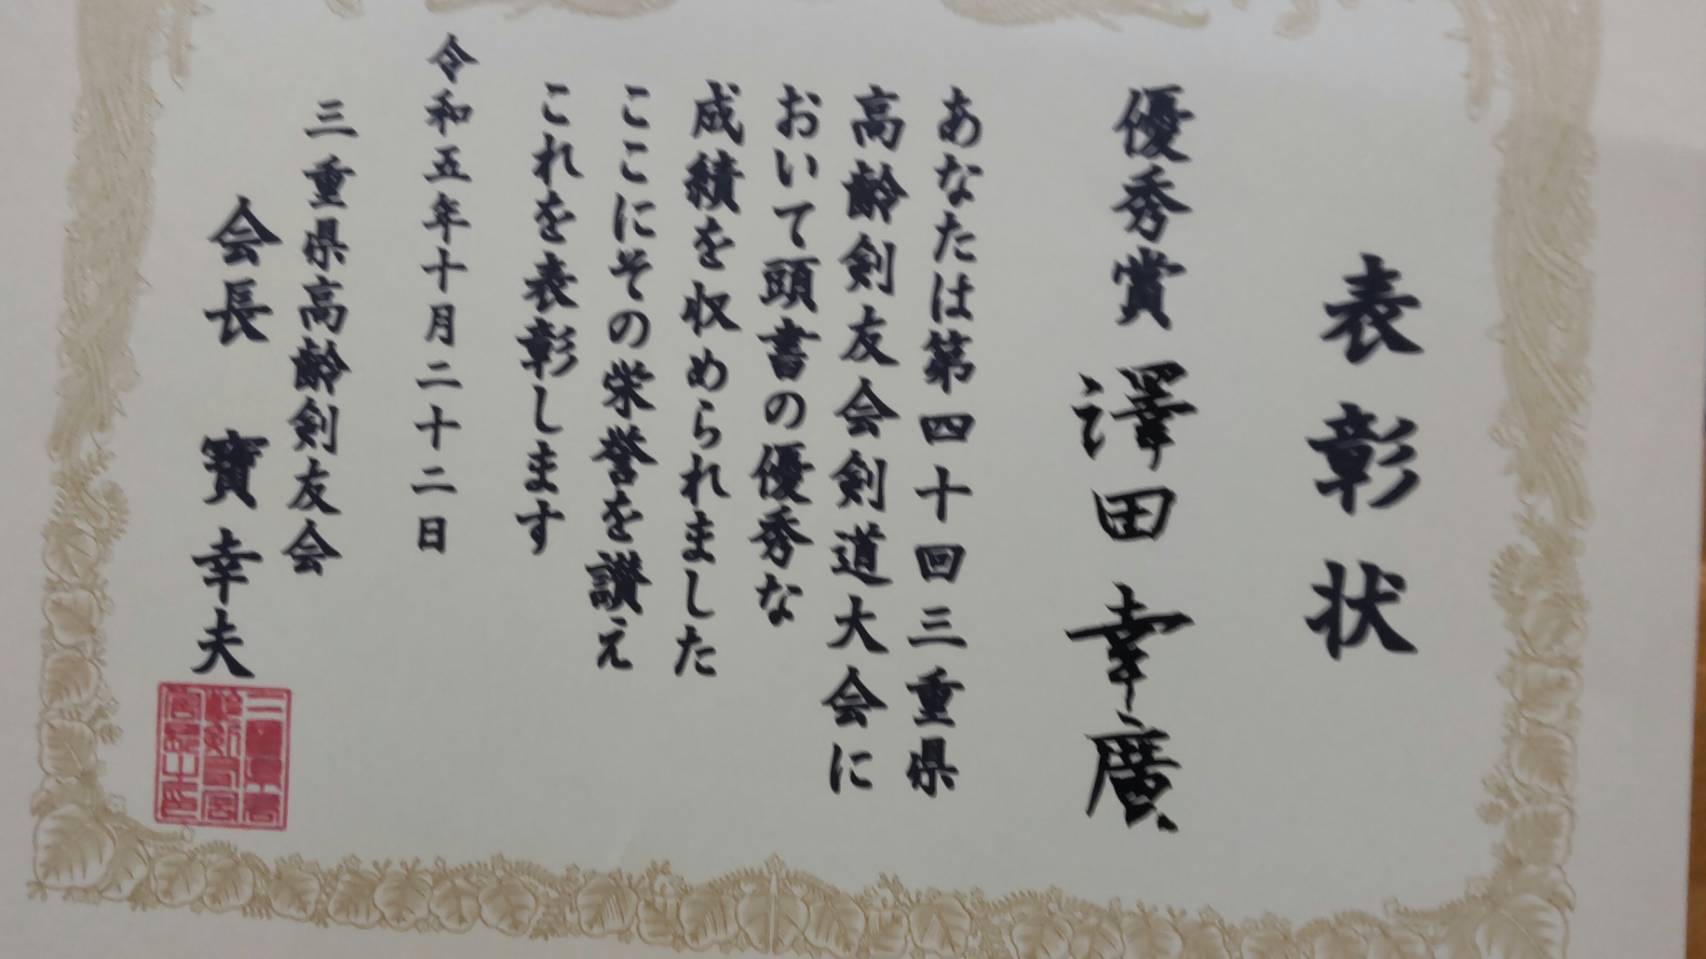 表彰状
優秀賞 澤田幸廣
あなたは第四十回三重県
高齢剣友会剣道大会に
おいて頭書の優秀な
成績を収められました
ここにその栄誉を讃え
これを表彰します
令和五年十月二十二日
三重県高齢剣友会
会長 寶幸夫